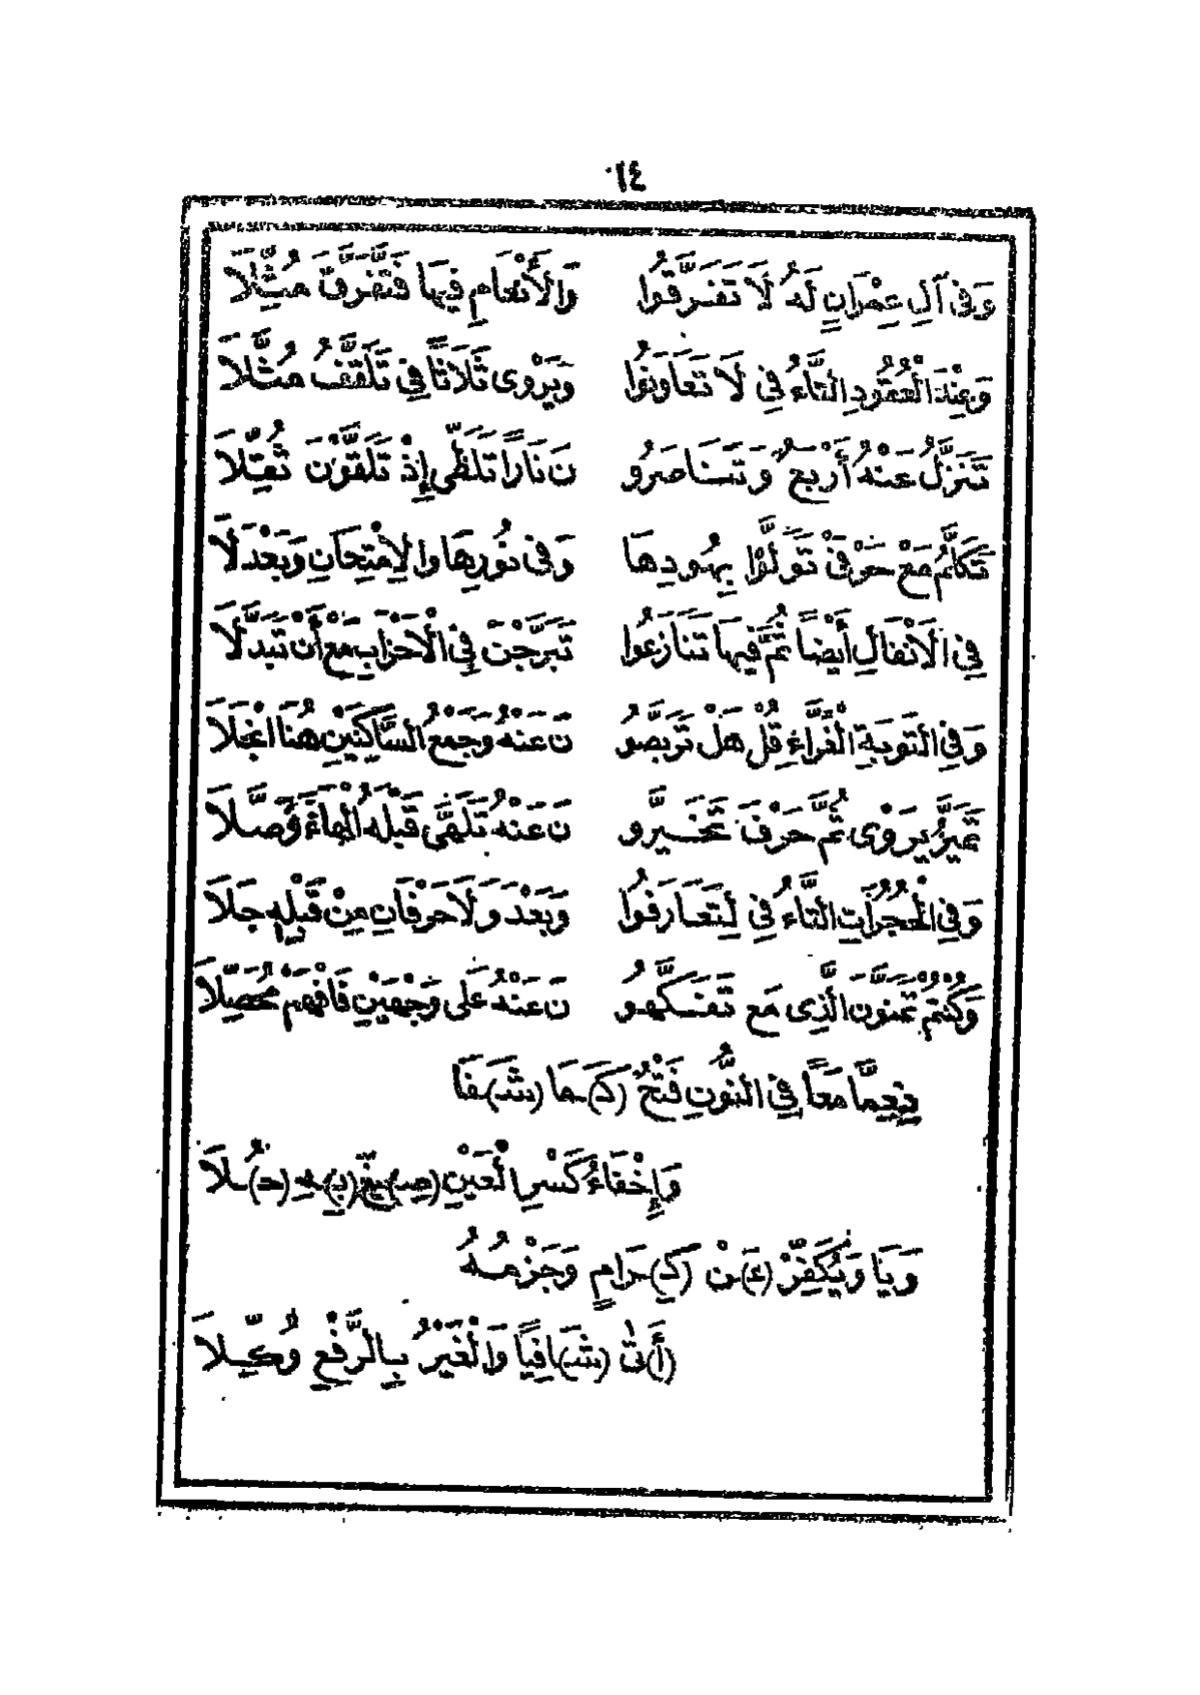 ٦٤
وَفِى آلِ عِمْرَانٍ لَهُ لَا تَفَرَّقُوا وَالْأَنْعَامِ فِيهَا فَتَفَرَّقَ مُثِّلَا
وَعِنْدَ الْعُقُودِ التَّاءُ فِى لَا تَعَاوَنُوا وَيَرْوِى ثَلَاثًا فِى تَلَقَّفُ مُثَّلَا
تَنَزَّلُ عَنْهُ أَرْبَعٌ وَتَنَاصَرُو نَ نَارًا تَلَظَّى إِذْ تَلَقَّوْنَ ثُقِّلَا
تَكَلَّمُ مَعْ حَرْفَىْ تَوَلَّوْا بِهُودِهَا وَفِى نُورِهَا وَالِامْتِحَانِ وَبَعْدَ لَا
فِى الْأَنْفَالِ أَيْضًا ثُمَّ فِيهَا تَنَازَعُوا تَبَرَّجْنَ فِى الْأَحْزَابِ مَعْ أَنْ تَبَدَّلَا
وَفِى التَّوْبَةِ الْغَرَّاءِ قُلْ هَلْ تَرَبَّصُو نَ عَنْهُ وَجَمْعُ السَّاكِنَيْنِ هُنَا انْجَلَا
تَمَيَّزُ يَرْوِى ثُمَّ حَرْفَ تَخَيَّرُو نَ عَنْهُ تَلَهَّى قَبْلَهُ الْهَاءَ وَصَّلَا
وَفِى الْحُجُرَاتِ التَّاءُ فِى لِتَعَارَفُوا وَبَعْدَ وَلَا حَرْفَانِ مِنْ قَبْلِهِ جَلَا
وَكُنْتُمْ تَمَنَّوْنَ الَّذِى مَعَ تَفَكَّهُو نَ عَنْهُ عَلَى وَجْهَيْنِ فَافْهَمْ مُحَصِّلَا
نِعِمَّا مَعًا فِى النُّونِ فَتْحٌ (كَـ)ـمَا (شَـ)ـفَا
وَإِخْفَاءُ كَسْرِ الْعَيْنِ (صِـ)ـيغَ (بِـ)ـهِ (حُـ)ـلَا
وَيَا وَيُكَفِّرْ (عَـ)ـنْ (كِـ)ـرَامٍ وَجَزْمُهُ
(أَ)تَى (شَـ)ـافِيًا وَالْغَيْرُ بِالرَّفْعِ وُكِّلَا